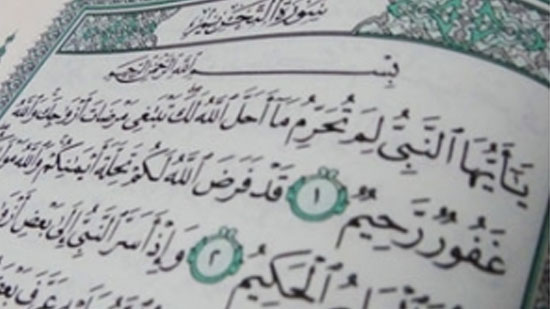 سُورَةُ التَّحْرِيمِ
بِسْمِ ٱللَّهِ ٱلرَّحْمَٰنِ ٱلرَّحِيمِ
يَٰٓأَيُّهَا ٱلنَّبِىُّ لِمَ تُحَرِّمُ مَآ أَحَلَّ ٱللَّهُ لَكَ تَبْتَغِى مَرْضَاتَ أَزْوَٰجِكَ وَٱللَّهُ
غَفُورٌ رَّحِيمٌ ١ قَدْ فَرَضَ ٱللَّهُ لَكُمْ تَحِلَّةَ أَيْمَٰنِكُمْ وَٱللَّهُ
ٱلْحَكِيمُ ٢ وَإِذْ أَسَرَّ ٱلنَّبِىُّ إِلَىٰ بَعْضِ